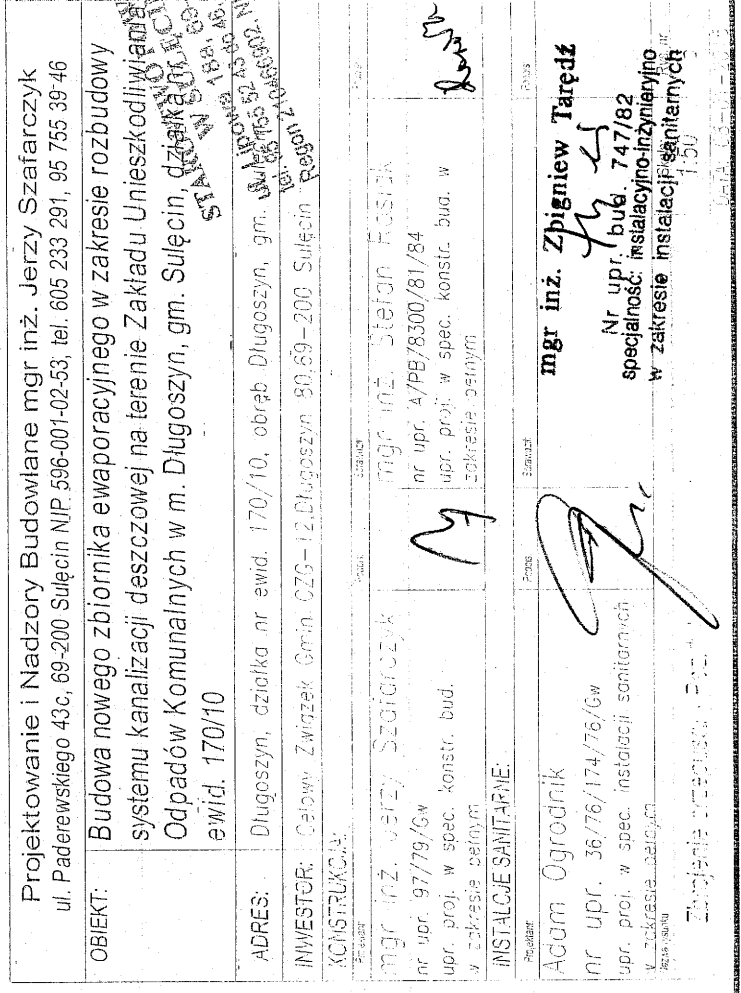 Projektowanie i Nadzory Budowlane mgr inż. Jerzy Szafarczyk
ul. Paderewskiego 43c, 69-200 Sulęcin NIP. 596-001-02-53, tel. 605 233 291, 95 755 39 46
OBIEKT:
Budowa nowego zbiornika ewaporacyjnego w zakresie rozbudowy
systemu kanalizacji deszczowej na terenie Zakładu Unieszkodliwiania
Odpadów Komunalnych w m. Długoszyn, gm. Sulęcin, działka nr
ewid. 170/10
ADRES:
Długoszyn, działka nr ewid. 170/10, obręb Długoszyn, gm.
INWESTOR:
Celowy Związek Gmin CZG-12, Długoszyn 80, 69-200 Sulęcin
KONSTRUKCJA:
Projektant:
Podpis:
Sprawdził:
Podpis:
mgr inż. Jerzy Szafarczyk
nr upr. 97/79/Gw
upr. proj. w spec. konstr. bud.
w zakresie pełnym
mgr inż. Stefan
nr upr. A/PB/8300/81/84
upr. proj. w spec. konstr. bud. w
zakresie pełnym
INSTALCJE SANITARNE:
Projektant:
Podpis:
Sprawdził:
Podpis:
Adam Ogrodnik
nr upr. 36/76/174/76/Gw
upr. proj. w spec. instalacji sanitarnych
w zakresie pełnym
mgr inż. Zbigniew Tarędź
Nr upr. bud. 747/82
specjalność: instalacyjno-inżynieryjno
w zakresie instalacji sanitarnych
Nazwa rysunku
Zbrojenie
1:50
DATA